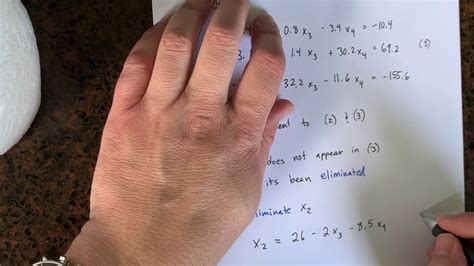 0.8 x₃ - 3.4 x₄ = -10.4
1.4 x₃ + 30.2 x₄ = 69.2 (3)
32.2 x₃ - 11.6 x₄ = -155.6
to (2) & (3)
does not appear in (3)
its been eliminated
x₂
x₂ = 26 - 2x₃ - 8.5 x₄